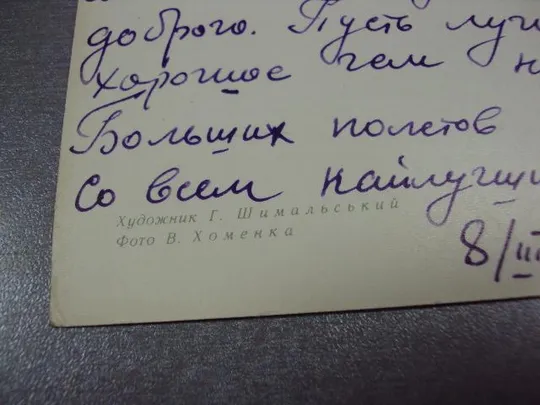 доброго. Пусть луч
хорошое чем н
Больших полетов
Со всем найлучши
Художник Г. Шимальський
Фото В. Хоменка
8/III